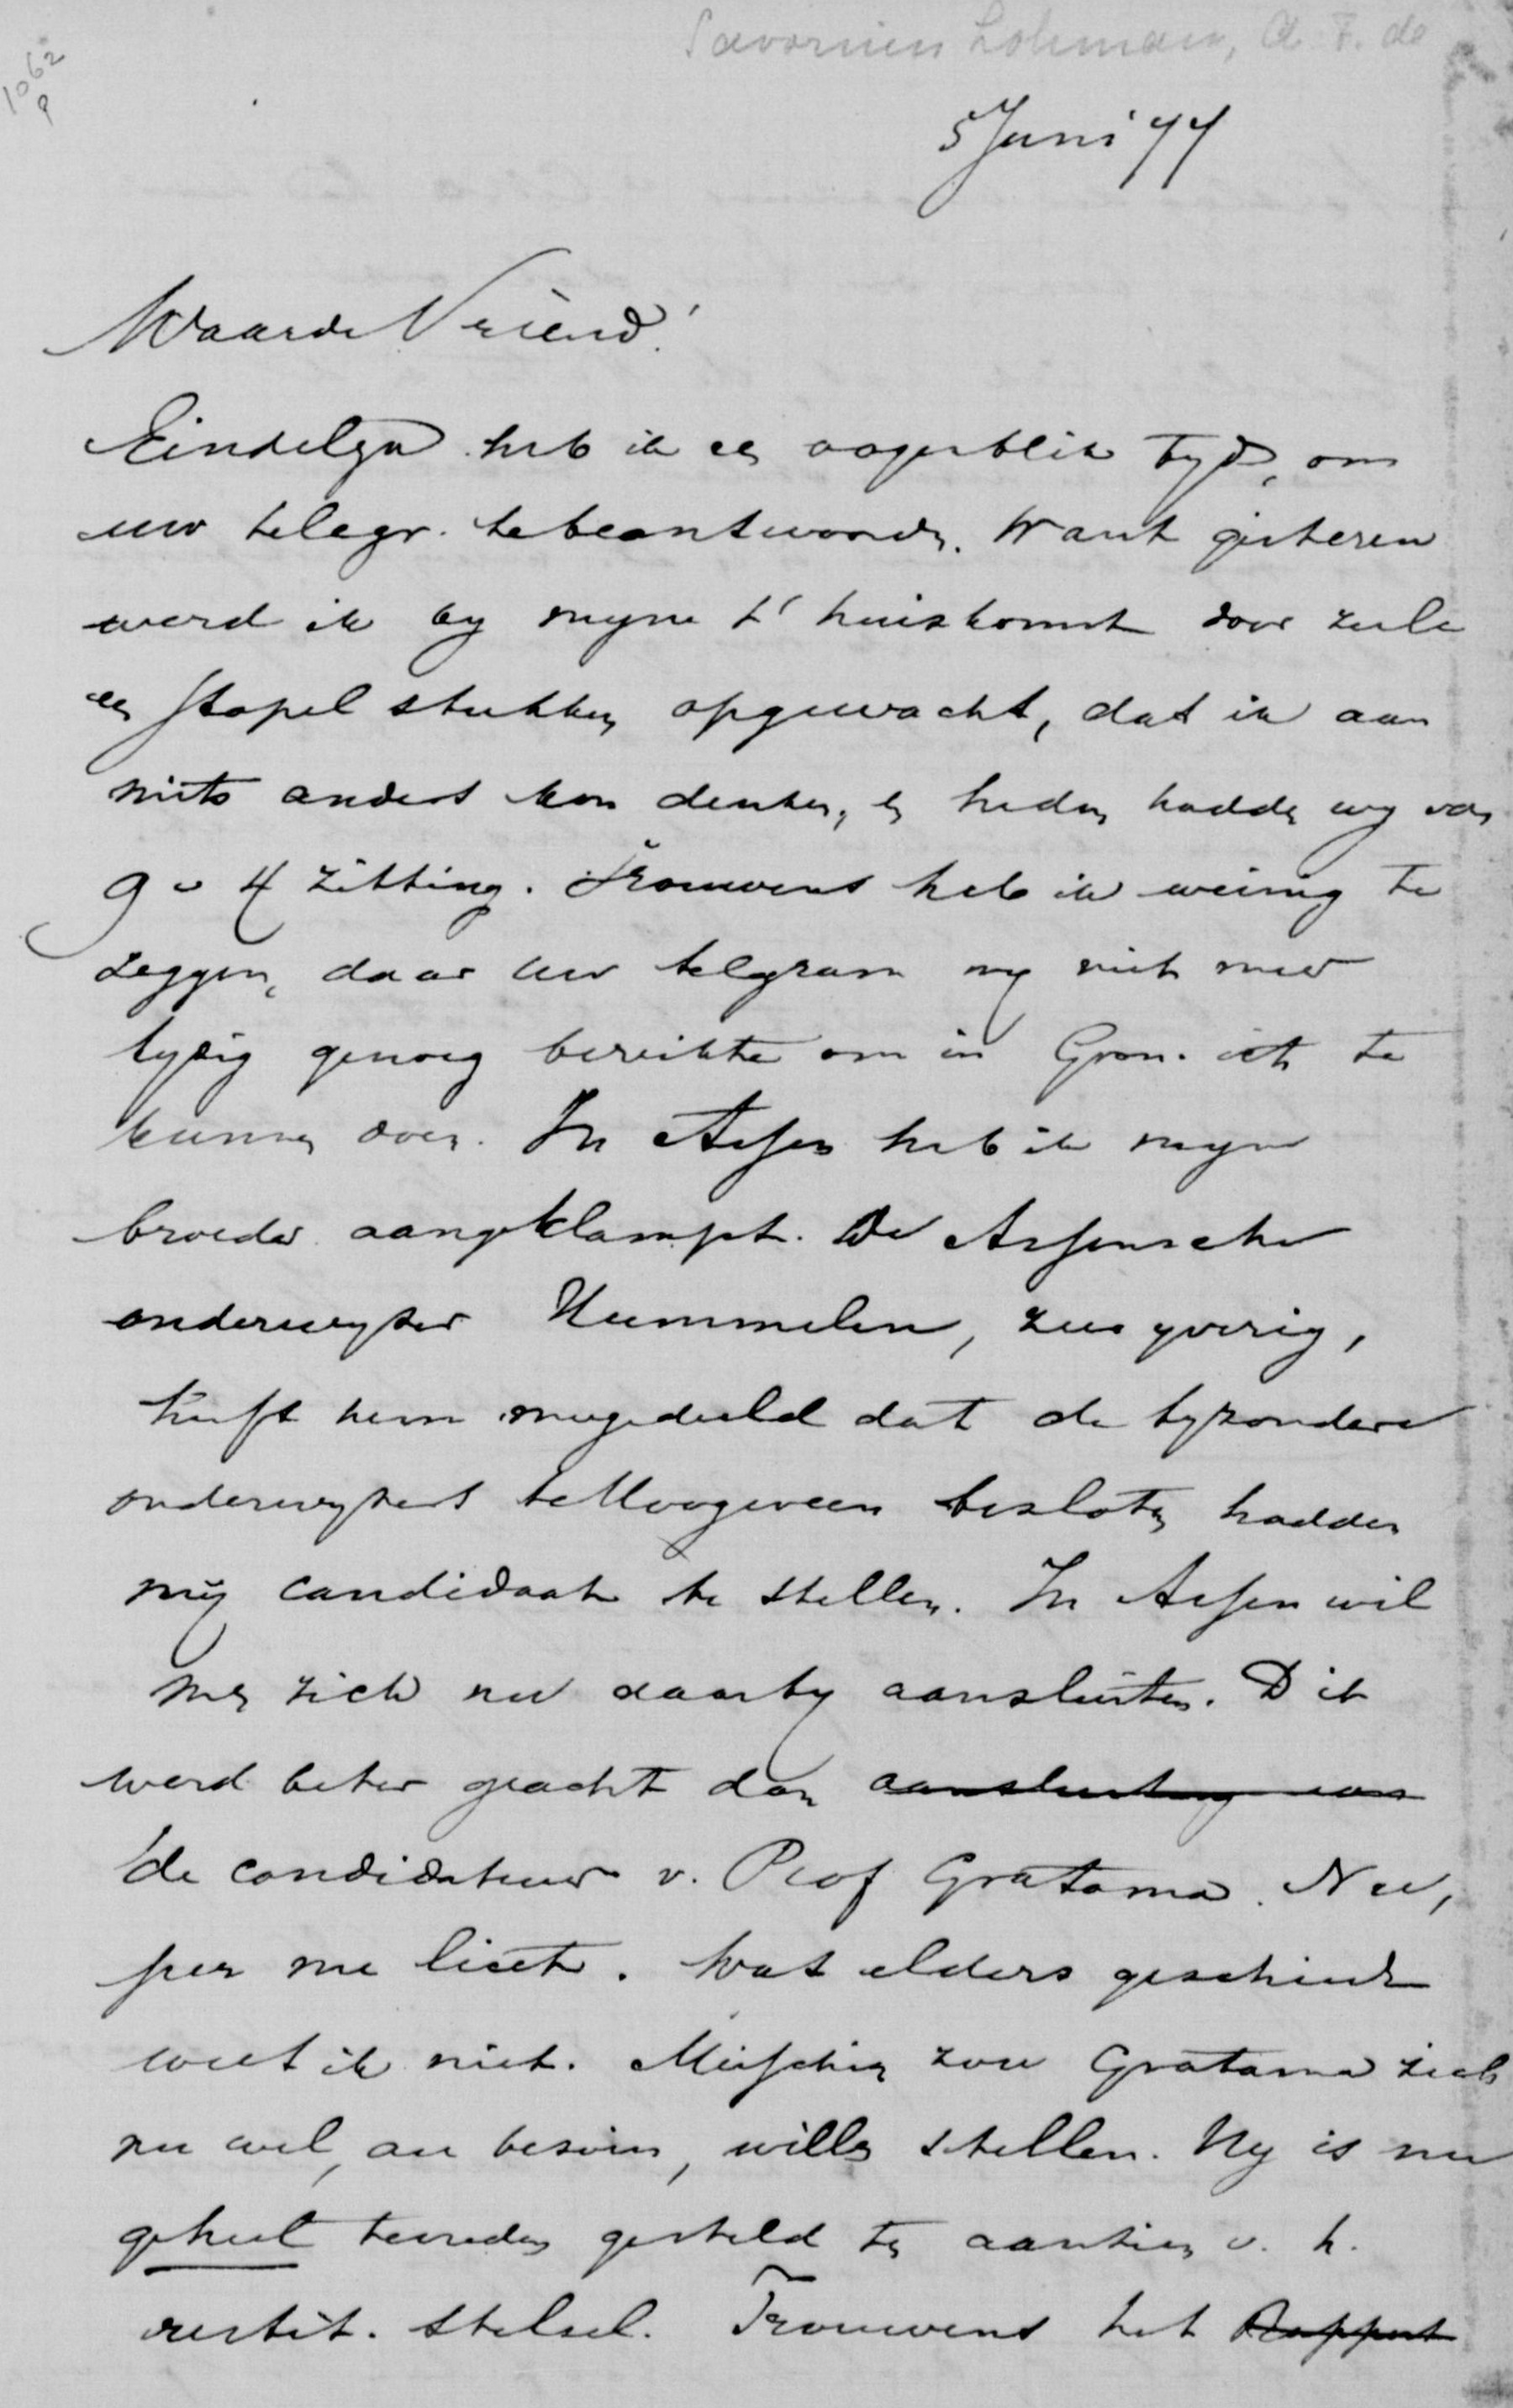 Savornin Lohman, A. F. de
1062
9
5 Juni 77
Waarde Vriend!
Eindelyk heb ik een oogenblik tyd, om
uw telegr. te beantwoorden. Want gisteren
werd ik by myne t'huiskomst door zulk
een stapel stukken opgewacht, dat ik aan
niets anders kon denken, en heden hadden wy van
9 - 4 zitting. Trouwens heb ik weinig te
zeggen, daar uw telegram my niet meer
tydig genoeg bereikte om in Gron. iets te
kunnen doen. In Assen heb ik myn
broeder aangeklampt. De Assensche
onderwyzer Hummelen, zeer yverig,
heeft hem meegedeeld dat de byzondere
onderwyzers te Hoogeveen besloten hadden
my candidaat te stellen. In Assen wil
men zich nu daarby aansluiten. Dit
werd beter geacht dan aansluiting aan
de candidatuur v. Prof Gratama. Nu,
per me licet. Wat elders geschiedt
weet ik niet. Misschien zou Gratama zich
nu wel, au besoin, willen stellen. Hy is nu
geheel tevreden gesteld ten aanzien v. h.
restit. stelsel. Trouwens het Rapport